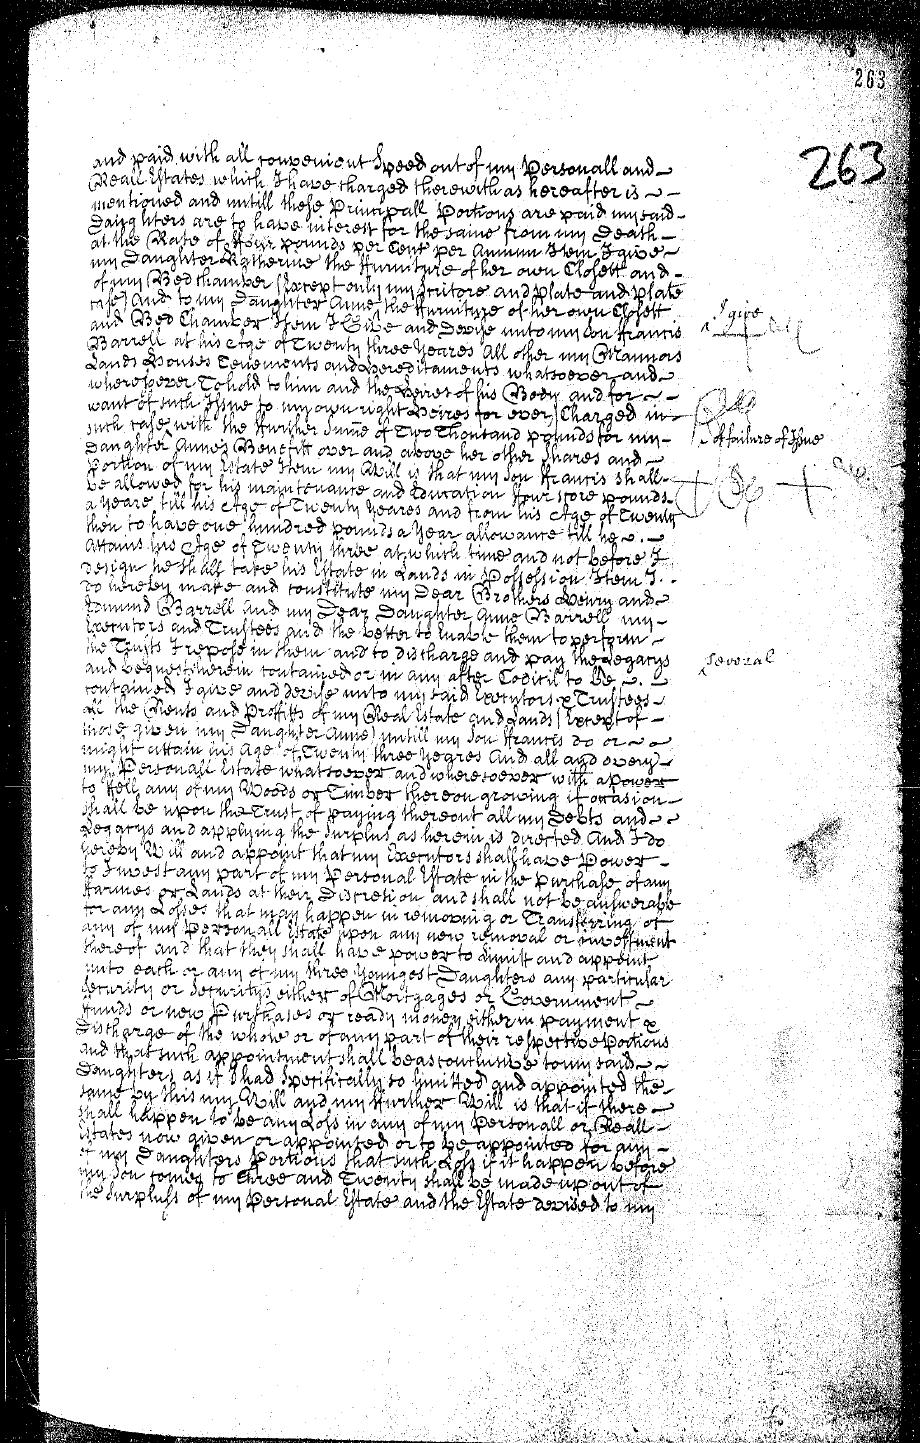 263
263
and paid with all convenient Speed out of my Personall and
Reall Estates which I have charged therewith as hereafter is
mentioned and untill these Principall Portions are paid my said
Daughters are to have interest for the same from my Death
at the Rate of ffour pounds per Cent per Annum Item I give
my Daughter Katherine the ffurniture of her own Closett and
of my Bedchamber (Except only my Scritore and plate and plate
case) And to my Daughter Anne the ffurniture of her own Closett
and Bed Chamber Item I Give and Devise unto my son Francis
I give
Barrell at his Age of Twenty three Yeares All other my Mannors
Lands Houses Tenements and Hereditaments whatsoever and
wheresoever To hold to him and the Heires of his Body and for
want of such Issue to my own right Heires for ever Charged in
such case with the ffurther Sume of Two Thousand pounds for my
of failure of Issue
Daughter Anne's Benefitt over and above her other Shares and
Portion of my Estate Item my Will is that my son ffrancis shall
be allowed for his maintenance and Education ffour score pounds
a Yeare till his Age of Twenty Yeares and from his Age of Twenty
then to have one hundred pounds a Year allowance till he
Attains his Age of Twenty three at which time and not before I
design he shall take his Estate in Lands in Possession Item I
do hereby make and constitute my Dear Brothers Henry and
Edmund Barrell And my Dear Daughter Anne Barrell my
Executors and Trustees and the better to Enable them to perform
the Trusts I repose in them and to discharge and pay the Legacys
several
and bequests herein contained or in any after Codicil to be
contained I give and devise unto my said Executors & Trustees
all the Rents and Proffitts of my Real Estate and Lands (Except of
those given my Daughter Anne) untill my Son ffrancis do or
might attain his Age of Twenty three Yeares And all and every
my Personall Estate whatsoever and wheresoever with a power
to ffell any of my Woods or Timber thereon growing if occasion
shall be upon the Trust of paying thereout all my Debts and
Legacys and applying the Surplus as herein is directed And I do
hereby Will and appoint that my Executors shall have Power
to Invest any part of my Personal Estate in the purchase of any
ffarmes or Lands at their Discretion and shall not be answerable
for any Losses that may happen in removing or Transferring of
any of my Personall Estate upon any new removal or investment
thereof and that they shall have power to limitt and appoint
unto each or any of my three Youngest Daughters any particular
Security or Securitys either of Mortgages or Government
ffunds or new Purchases or ready money either in payment &
Discharge of the whole or of any part of their respective Portions
and that such appointment shall be as conclusive to my said
Daughters as if I had Specifically so limitted and appointed the
same by this my Will and my ffurther Will is that if there
shall happen to be any Loss in any of my Personall or Reall
Estates now given or appointed or to be appointed for any
of my Daughters Portions that such Loss if it happen before
my Son comes to three and Twenty shall be made up out of
the Surpluss of my Personal Estate and the Estate devised to my